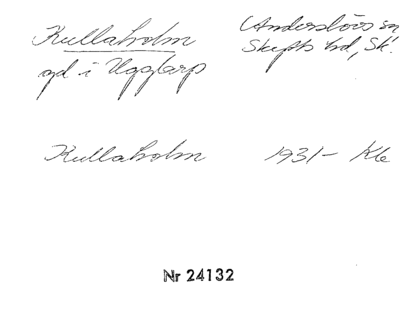 Kullaholm
gd i Ugglarp
Anderslövs sn
Skytts hd, Sk.
Kullaholm 1931- Kle
Nr 24132